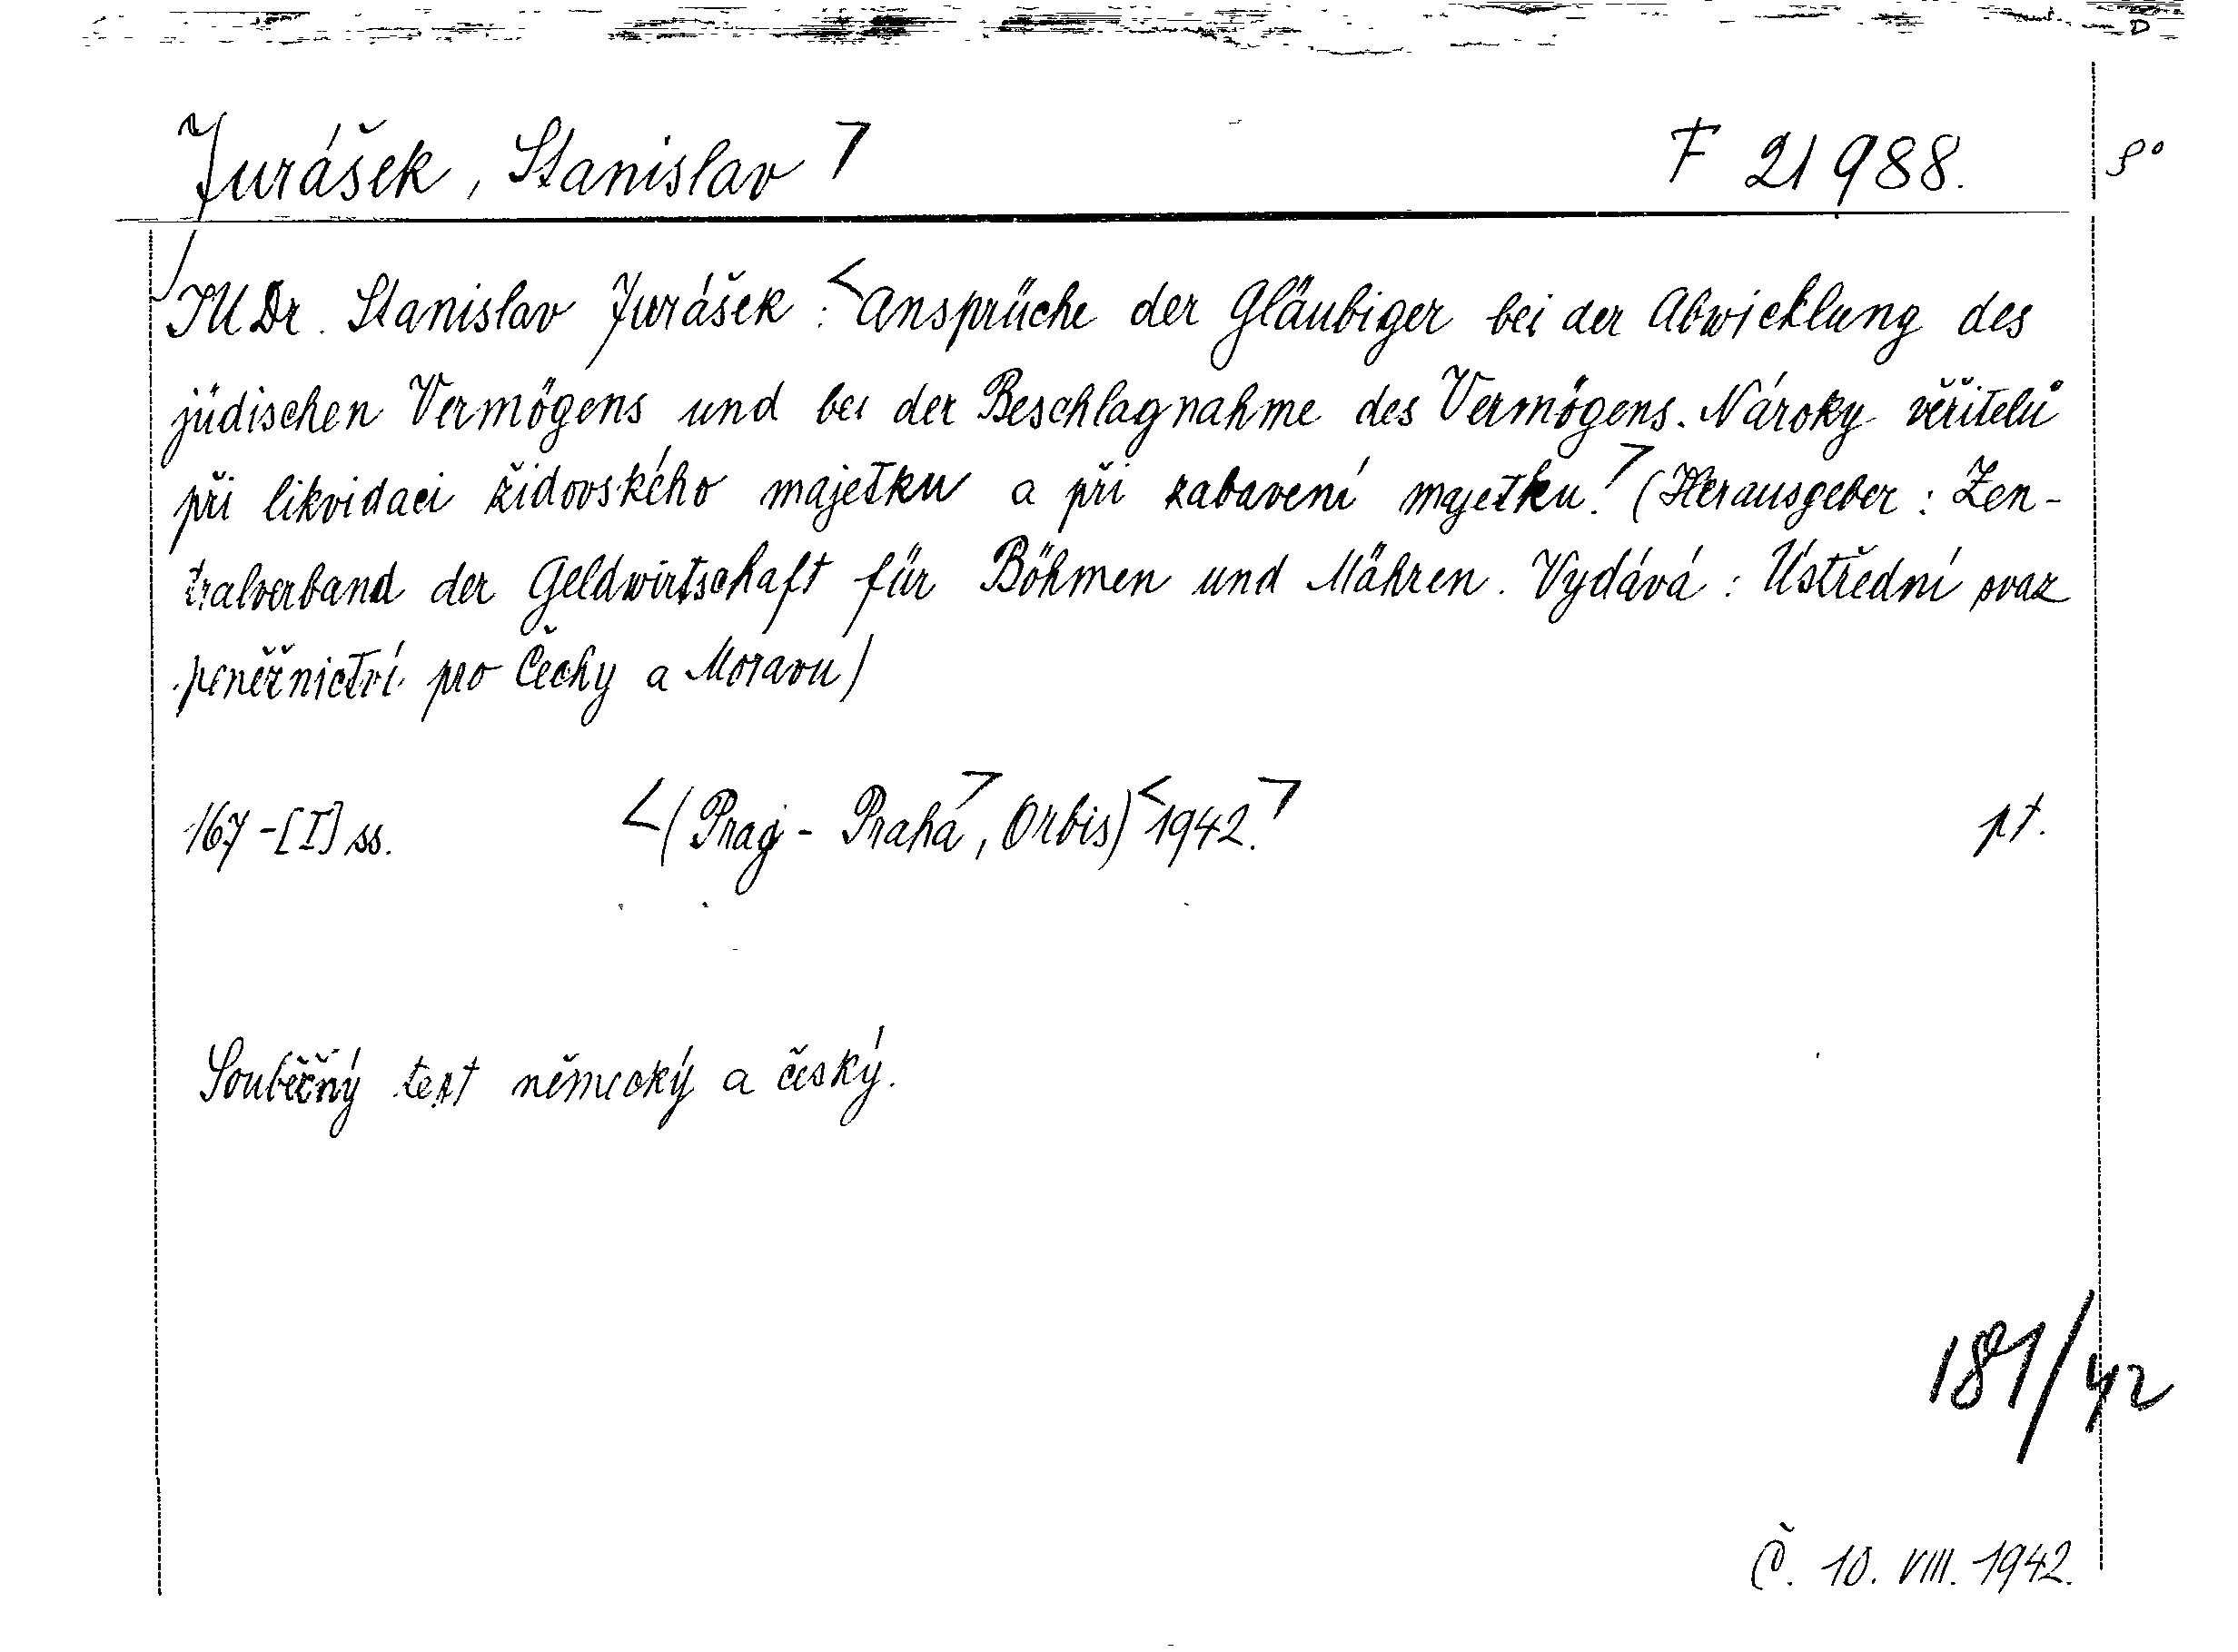 Jurášek, Stanislav ⁊ F 21988. 8°
JUDr. Stanislav Jurášek: <Ansprüche der Gläubiger bei der Abwicklung des
jüdischen Vermögens und bei der Beschlagnahme des Vermögens. Nároky věřitelů
při likvidaci židovského majetku a při zabavení majetku.⁊ (Herausgeber: Zen-
tralverband der Geldwirtschaft für Böhmen und Mähren. Vydává: Ústřední svaz
peněžnictví pro Čechy a Moravu)
167-[I] ss. <(Prag - Praha⁊, Orbis) <1942.⁊ pt.
Souběžný text německý a český.
181/42
Č. 10. VIII. 1942.